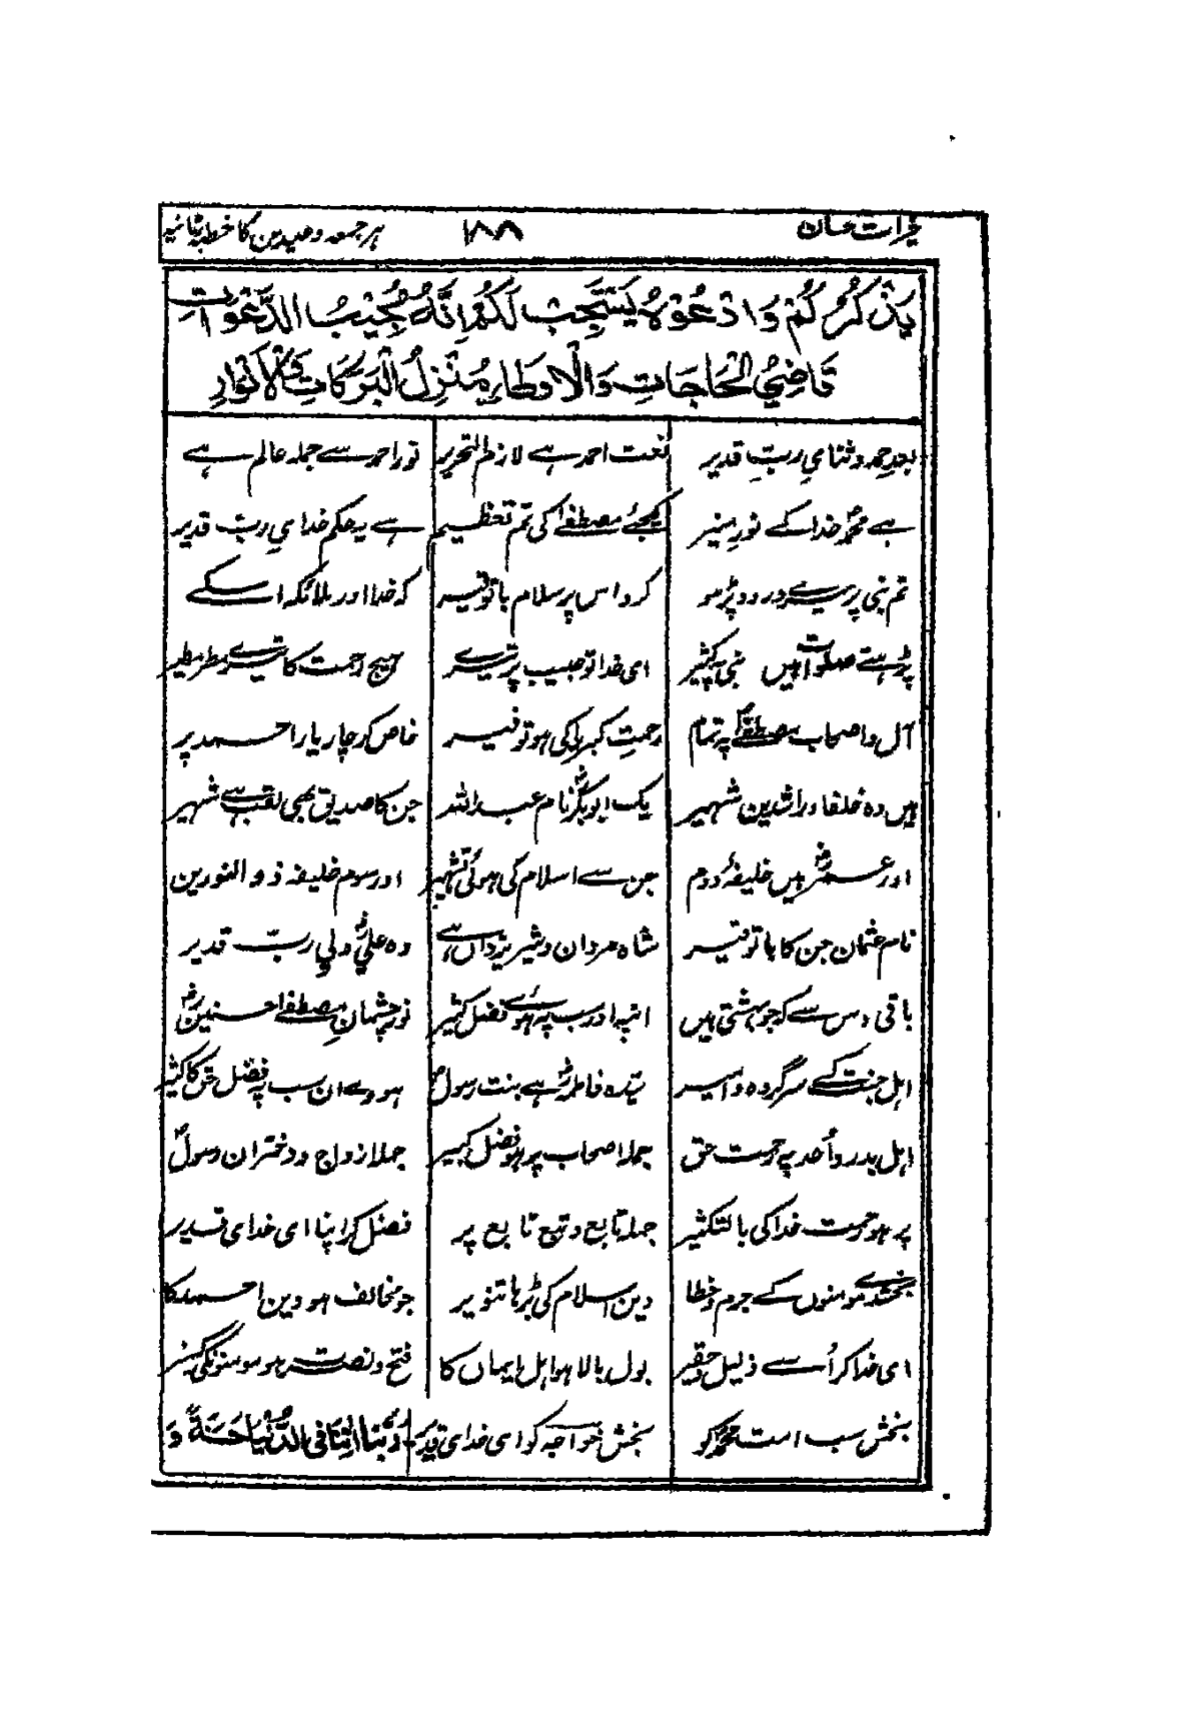 خیرات حسان ۱۸۸ ہر جمعہ وعیدین کا خطبہ ثانیہ
يَذْكُرْكُمْ وَادْعُوْهُ يَسْتَجِبْ لَكُمْ اِنَّهُ مُجِيْبُ الدَّعَوَاتِ
قَاضِيُ الْحَاجَاتِ وَالْاَوْطَارِ مُنْزِلُ الْبَرَكَاتِ وَالْاَنْوَارِ
بعدِ حمد و ثنایِ ربِّ قدیر نعت احمد ہے لازم التحریر نور احمد سے جملہ عالم ہے
ہے محمدؐ خدا کے نورِ منیر کیجئے مصطفےٰ کی تم تعظیم ہے یہ حکم خدایِ ربّ قدیر
تم نبی پر میرے درود پڑہو کرو اس پر سلام با توقیر کہ خدا اور ملائکہ اسکے
پڑہتے صلوات ہیں نبی پہ کثیر ای خدا تو حبیب پر تیرے بھیج رحمت کا تیرے مطر مطیر
آل و اصحاب مصطفےٰ پہ تمام رحمتِ کبریا کی ہو توفیر خاص کر چار یار احمد پر
ہیں وہ خلفاء راشدین شہیر یک ابوبکرؓ نام عبد اللہ جن کا صدیق بھی لقب ہے شہیر
اور عمرؓ ہیں خلیفۂ دوم جن سے اسلام کی ہوئی تشہیر اور سوم خلیفہ ذو النورین
نام عثمان جن کا با توقیر شاہ مردان و شیر یزداں ہے وہ علیؓ ولیِ ربّ قدیر
باقی دس سے کہ جو بہشتی ہیں انپہ اور سب پہ ہوئے فضل کثیر نور چشمانِ مصطفےٰ حسنینؓ
اہل جنت کے سرگردہ و امیر سیّدہ فاطمہؓ ہے بنت رسولؐ ہووے ان سب پہ فضل حق کا کثیر
اہل بدر و اُحد پہ رحمت حق جملا صحاب پر ہو فضل کبیر جملا ازواج و دختران رسولؐ
پر ہو رحمت خدا کی بالتکثیر جملہ تابع و تبع تابع پر فضل کر اپنا ای خدای قدیر
بخشدے مومنوں کے جرم و خطا دین اسلام کی بڑہا تنویر جو مخالف ہو دین احمد کا
ای خدا کر اُسے ذلیل و حقیر بول بالا ہو اہل ایماں کا فتح و نصرت ہو مومنونکی
بخش سب امت محمدؐ کو بخش خواجہ کو ای خدای قدیر رَبَّنَا اٰتِنَا فِی الدُّنْیَا حَسَنَةً وَّ